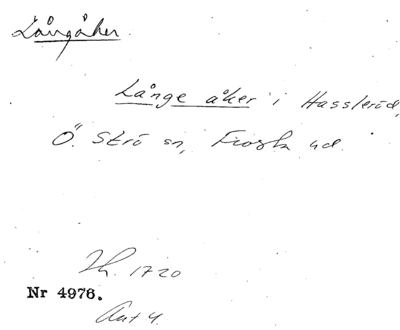 Långåker.
Långe åker i Hassleröd,
Ö. Strö sn, Frosta hd.
Lh. 1720
Nr 4976.
Avt 4.